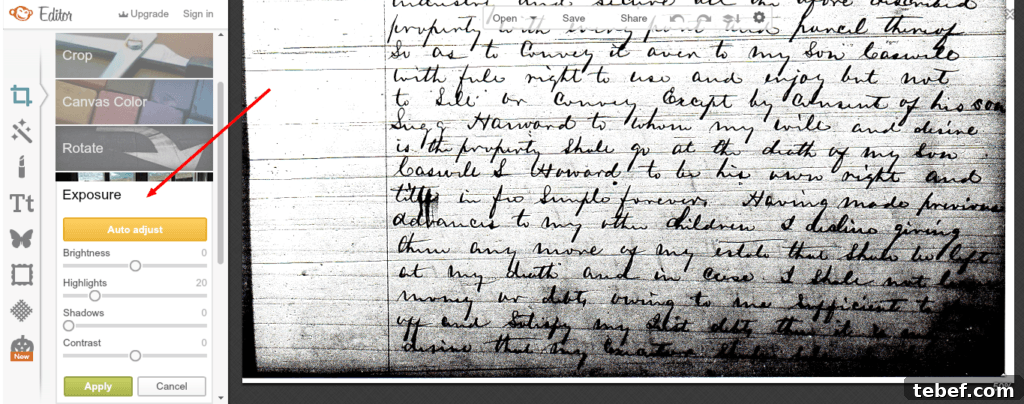 Editor
Upgrade
Sign in
Open
Save
Share
Crop
Canvas Color
Rotate
Exposure
Auto adjust
Brightness 0
Highlights 20
Shadows 0
Contrast 0
Apply
Cancel
Tt
New
and secure all the above described
property with every part and parcel thereof
So as to Convey it over to my Son Caswell
with full right to use and enjoy but not
to Sell or Convey Except by Consent of his son
Sugg Harward to whom my will and desire
is the property Shall go at the death of my Son
Caswell S Howard to be his own right and
title in fee Simple forever. Having made previous
advances to my other children I decline giving
them any more of my estate that Shall be left
at my death and in Case I Shall not
money or debts owing to me Sufficient to
off and Satisfy my Just debts then it is
desire that my
tebef.com